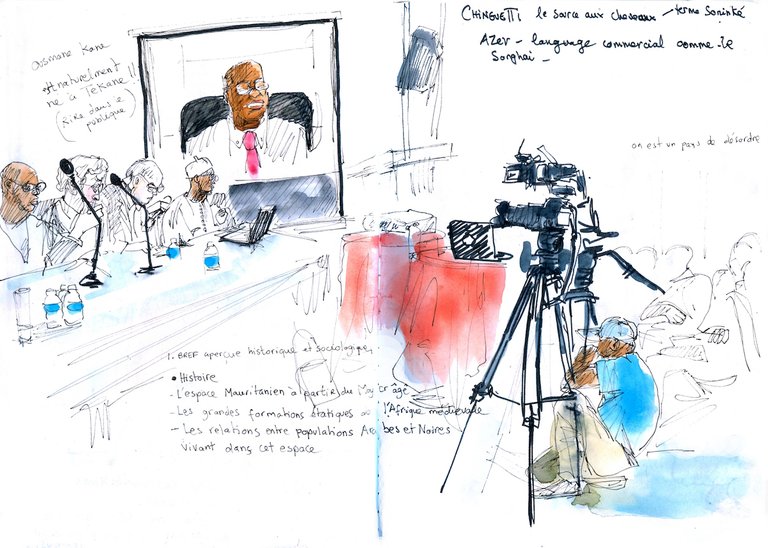 Ousmane Kane
est naturellement
né à Tékane !!
(Rires dans le
publique)
CHINGUETTI le source aux chevaux — terme Soninké
AZER - language commercial comme le
Songhai -
on est un pays de désordre
1. BREF aperçue historique et sociologique,
• Histoire
- L'espace Mauritanien à partir du Moyen âge
- Les grandes formations étatiques de l'Afrique médievale
- Les relations entre populations Arabes et Noires
vivant dans cet espace